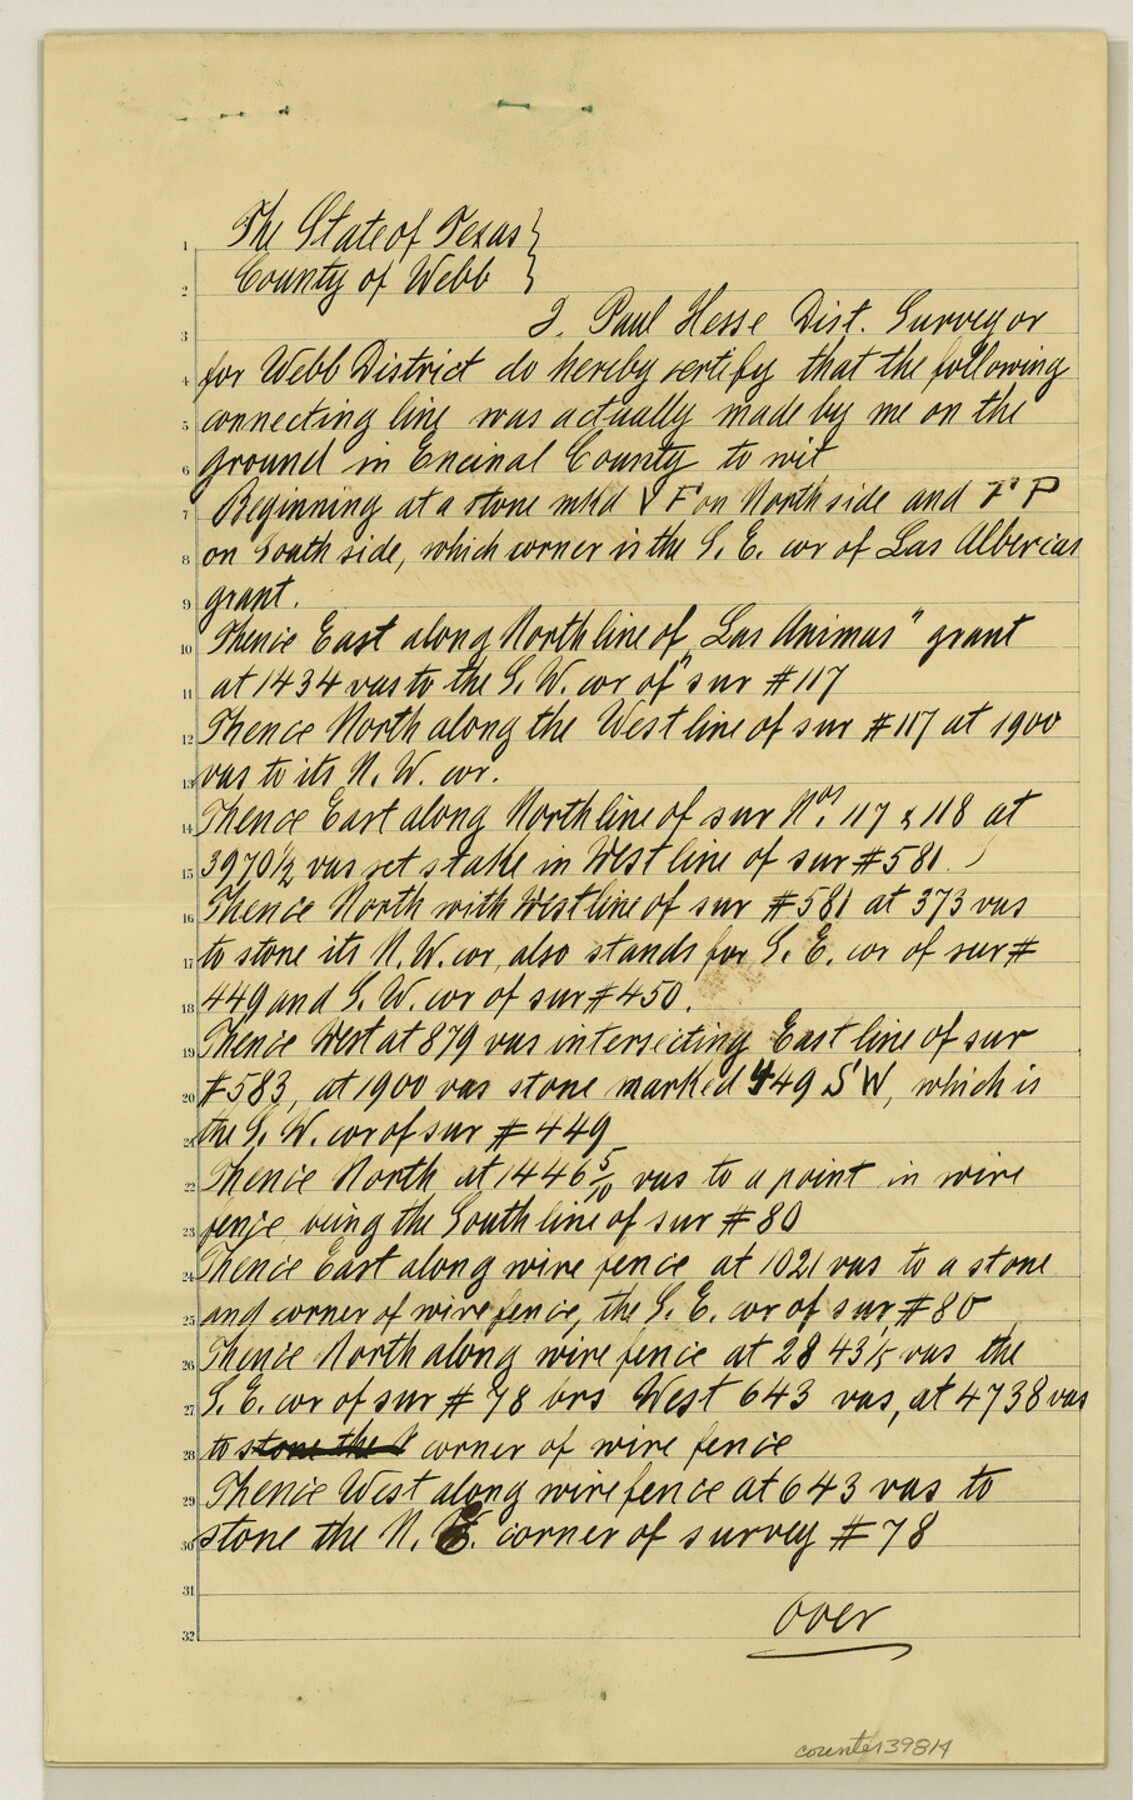 1 The State of Texas }
2 County of Webb }
3 I. Paul Hesse Dist. Surveyor
4 for Webb District do hereby certify that the following
5 connecting line was actually made by me on the
6 ground in Encinal County to wit
7 Beginning at a stone mkd V F on North side and F P
8 on South side, which corner is the S. E. cor of Las Albercas
9 grant.
10 Thence East along North line of "Las Animas" grant
11 at 1434 vas to the S. W. cor of sur #117
12 Thence North along the West line of sur #117 at 1900
13 vas to its N. W. cor.
14 Thence East along North line of sur Nos. 117 & 118 at
15 3970 1/2 vas set stake in West line of sur #581.
16 Thence North with West line of sur #581 at 373 vas
17 to stone its N. W. cor, also stands for S. E. cor of sur #
18 449 and S. W. cor of sur #450.
19 Thence West at 879 vas intersecting East line of sur
20 #583, at 1900 vas stone marked 449 S W, which is
21 the S. W. cor of sur #449
22 Thence North at 1446 5/10 vas to a point in wire
23 fence being the South line of sur #80
24 Thence East along wire fence at 1021 vas to a stone
25 and corner of wire fence, the S. E. cor of sur #80
26 Thence North along wire fence at 2843 1/5 vas the
27 S. E. cor of sur #78 brs West 643 vas, at 4738 vas
28 to stone the N corner of wire fence
29 Thence West along wire fence at 643 vas to
30 stone the N. E. corner of survey #78
31
32 over
counter 39814